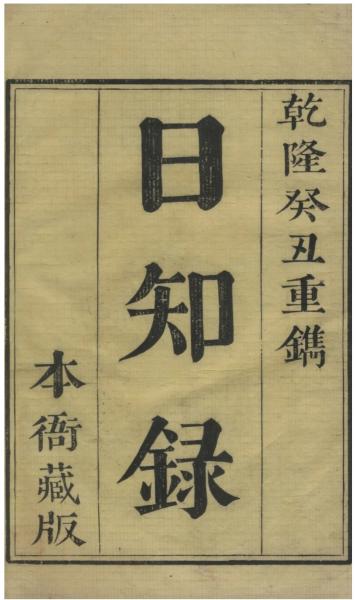 乾隆癸丑重鐫
日知録
本衙藏版